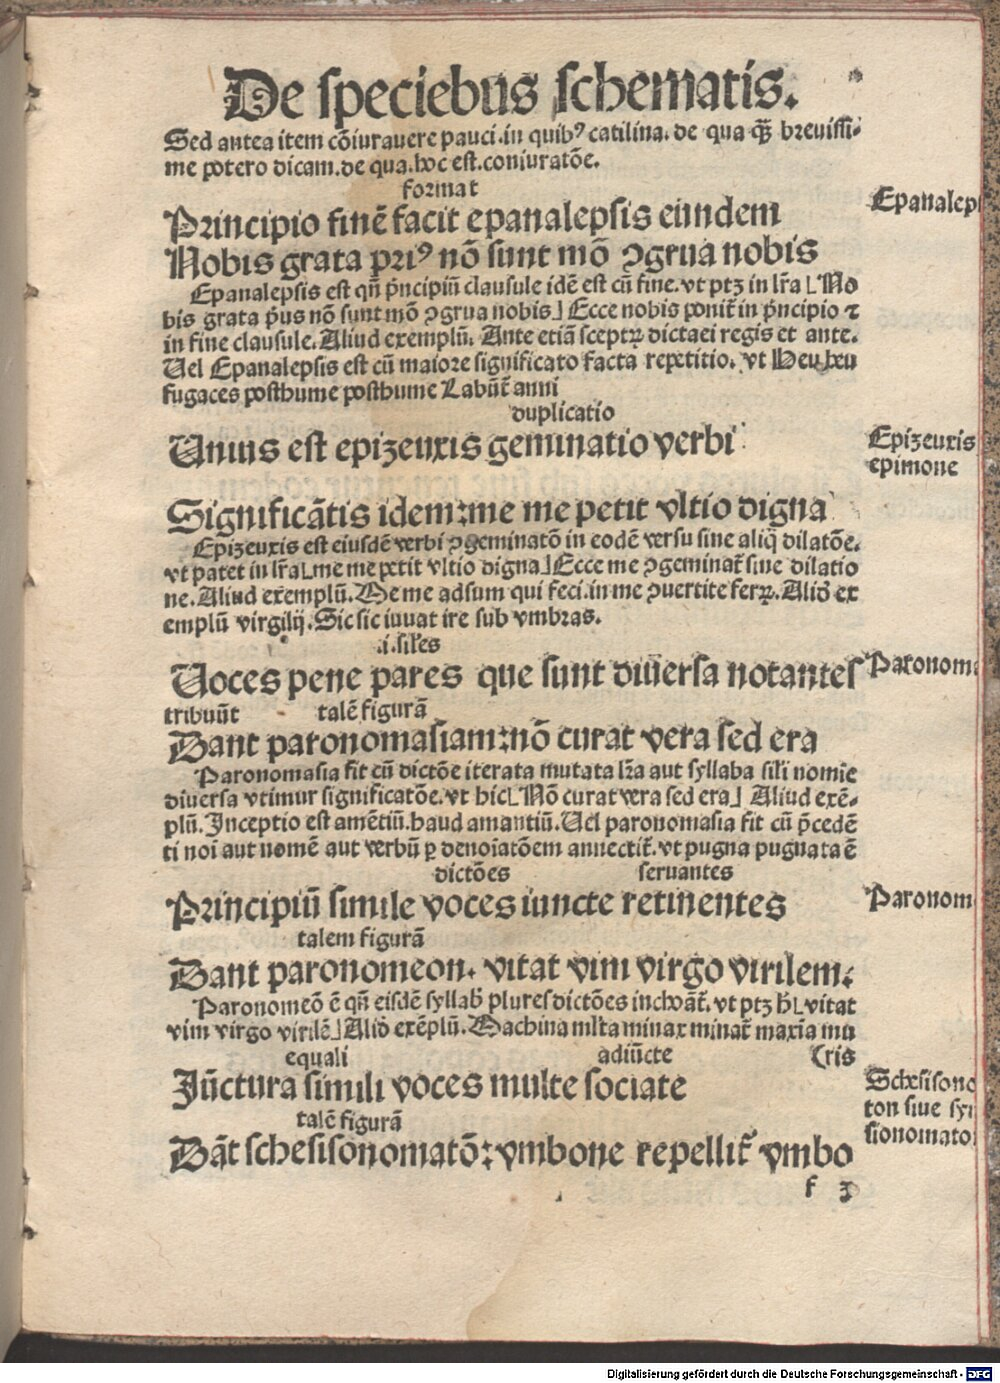 De speciebus schematis.
Sed antea item cōiurauere pauci.in quibꝰ catilina. de qua qͣꝫ breuissi-
me potero dicam.de qua.hoc est.coniuratōe.
format
Principio finē facit epanalepsis eundem
Epanalep
Nobis grata priꝰ nō sunt mō ꝯgrua nobis
Epanalepsis est qn̄ p̄ncipiū clausule idē est cū fine.vt ptꝫ in lr̄a ⌊No
bis grata p̄us nō sunt mō ꝯgrua nobis⌋ Ecce nobis ponit̄ in p̄ncipio ⁊
in fine clausule. Aliud exemplū. Ante etiā sceptꝝ dictaei regis et ante.
Uel Epanalepsis est cū maiore significato facta repetitio. vt Heu heu
fugaces posthume posthume Labūt̄ anni
duplicatio
Unius est epizeuxis geminatio verbi
Epizeuxis
epimone
Significātis idem:me me petit vltio digna
Epizeuxis est eiusdē verbi ꝯgeminatō in eodē versu sine aliq̄ dilatōe.
vt patet in lr̄a⌊me me petit vltio digna⌋ Ecce me ꝯgeminat̄ sine dilatio
ne. Aliud exemplū. Me me adsum qui feci.in me ꝯuertite ferꝝ. Aliđ ex
emplū virgilij. Sic sic iuuat ire sub vmbras.
.i.sil̄es
Uoces pene pares que sunt diuersa notantes
Paronom
tribuūt talē figurā
Dant paronomasiam:nō curat vera sed era
Paronomasia fit cū dictōe iterata mutata lr̄a aut syllaba sil̄i nomīe
diuersa vtimur significatōe. vt hic⌊Nō curat vera sed era⌋ Aliud exē-
plū. Inceptio est amētiū. haud amantiū. Uel paronomasia fit cū p̄cedē
ti noī aut nomē aut verbū ꝑ denoīatōem annectit̄. vt pugna pugnata ē
dictōes seruantes
Principiū simile voces iuncte retinentes
Paronom
talem figurā
Dant paronomeon. vitat vim virgo virilem:
Paronomeō ē qn̄ eisdē syllab̄ plures dictōes inchoāt̄. vt ptꝫ h̄⌊vitat
vim virgo virilē⌋ Aliđ exēplū. Machina ml̄ta minax minat̄ maxīa mu
equali adiūcte (ris
Iūctura simili voces multe sociate
Schesisono
ton siue syn
talē figurā
sionomato
Dāt schesisonomatō: vmbone repellit̄ vmbo
f 3
Digitalisierung gefördert durch die Deutsche Forschungsgemeinschaft - DFG